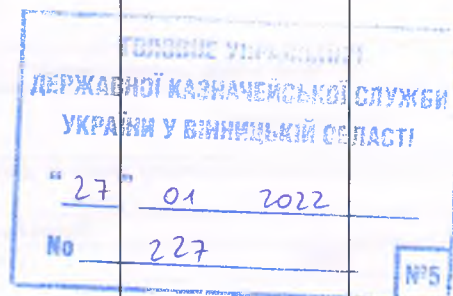 ГОЛОВНЕ УПРАВЛІННЯ
ДЕРЖАВНОЇ КАЗНАЧЕЙСЬКОЇ СЛУЖБИ
УКРАЇНИ У ВІННИЦЬКІЙ ОБЛАСТІ
"27" 01 2022
No 227
№5